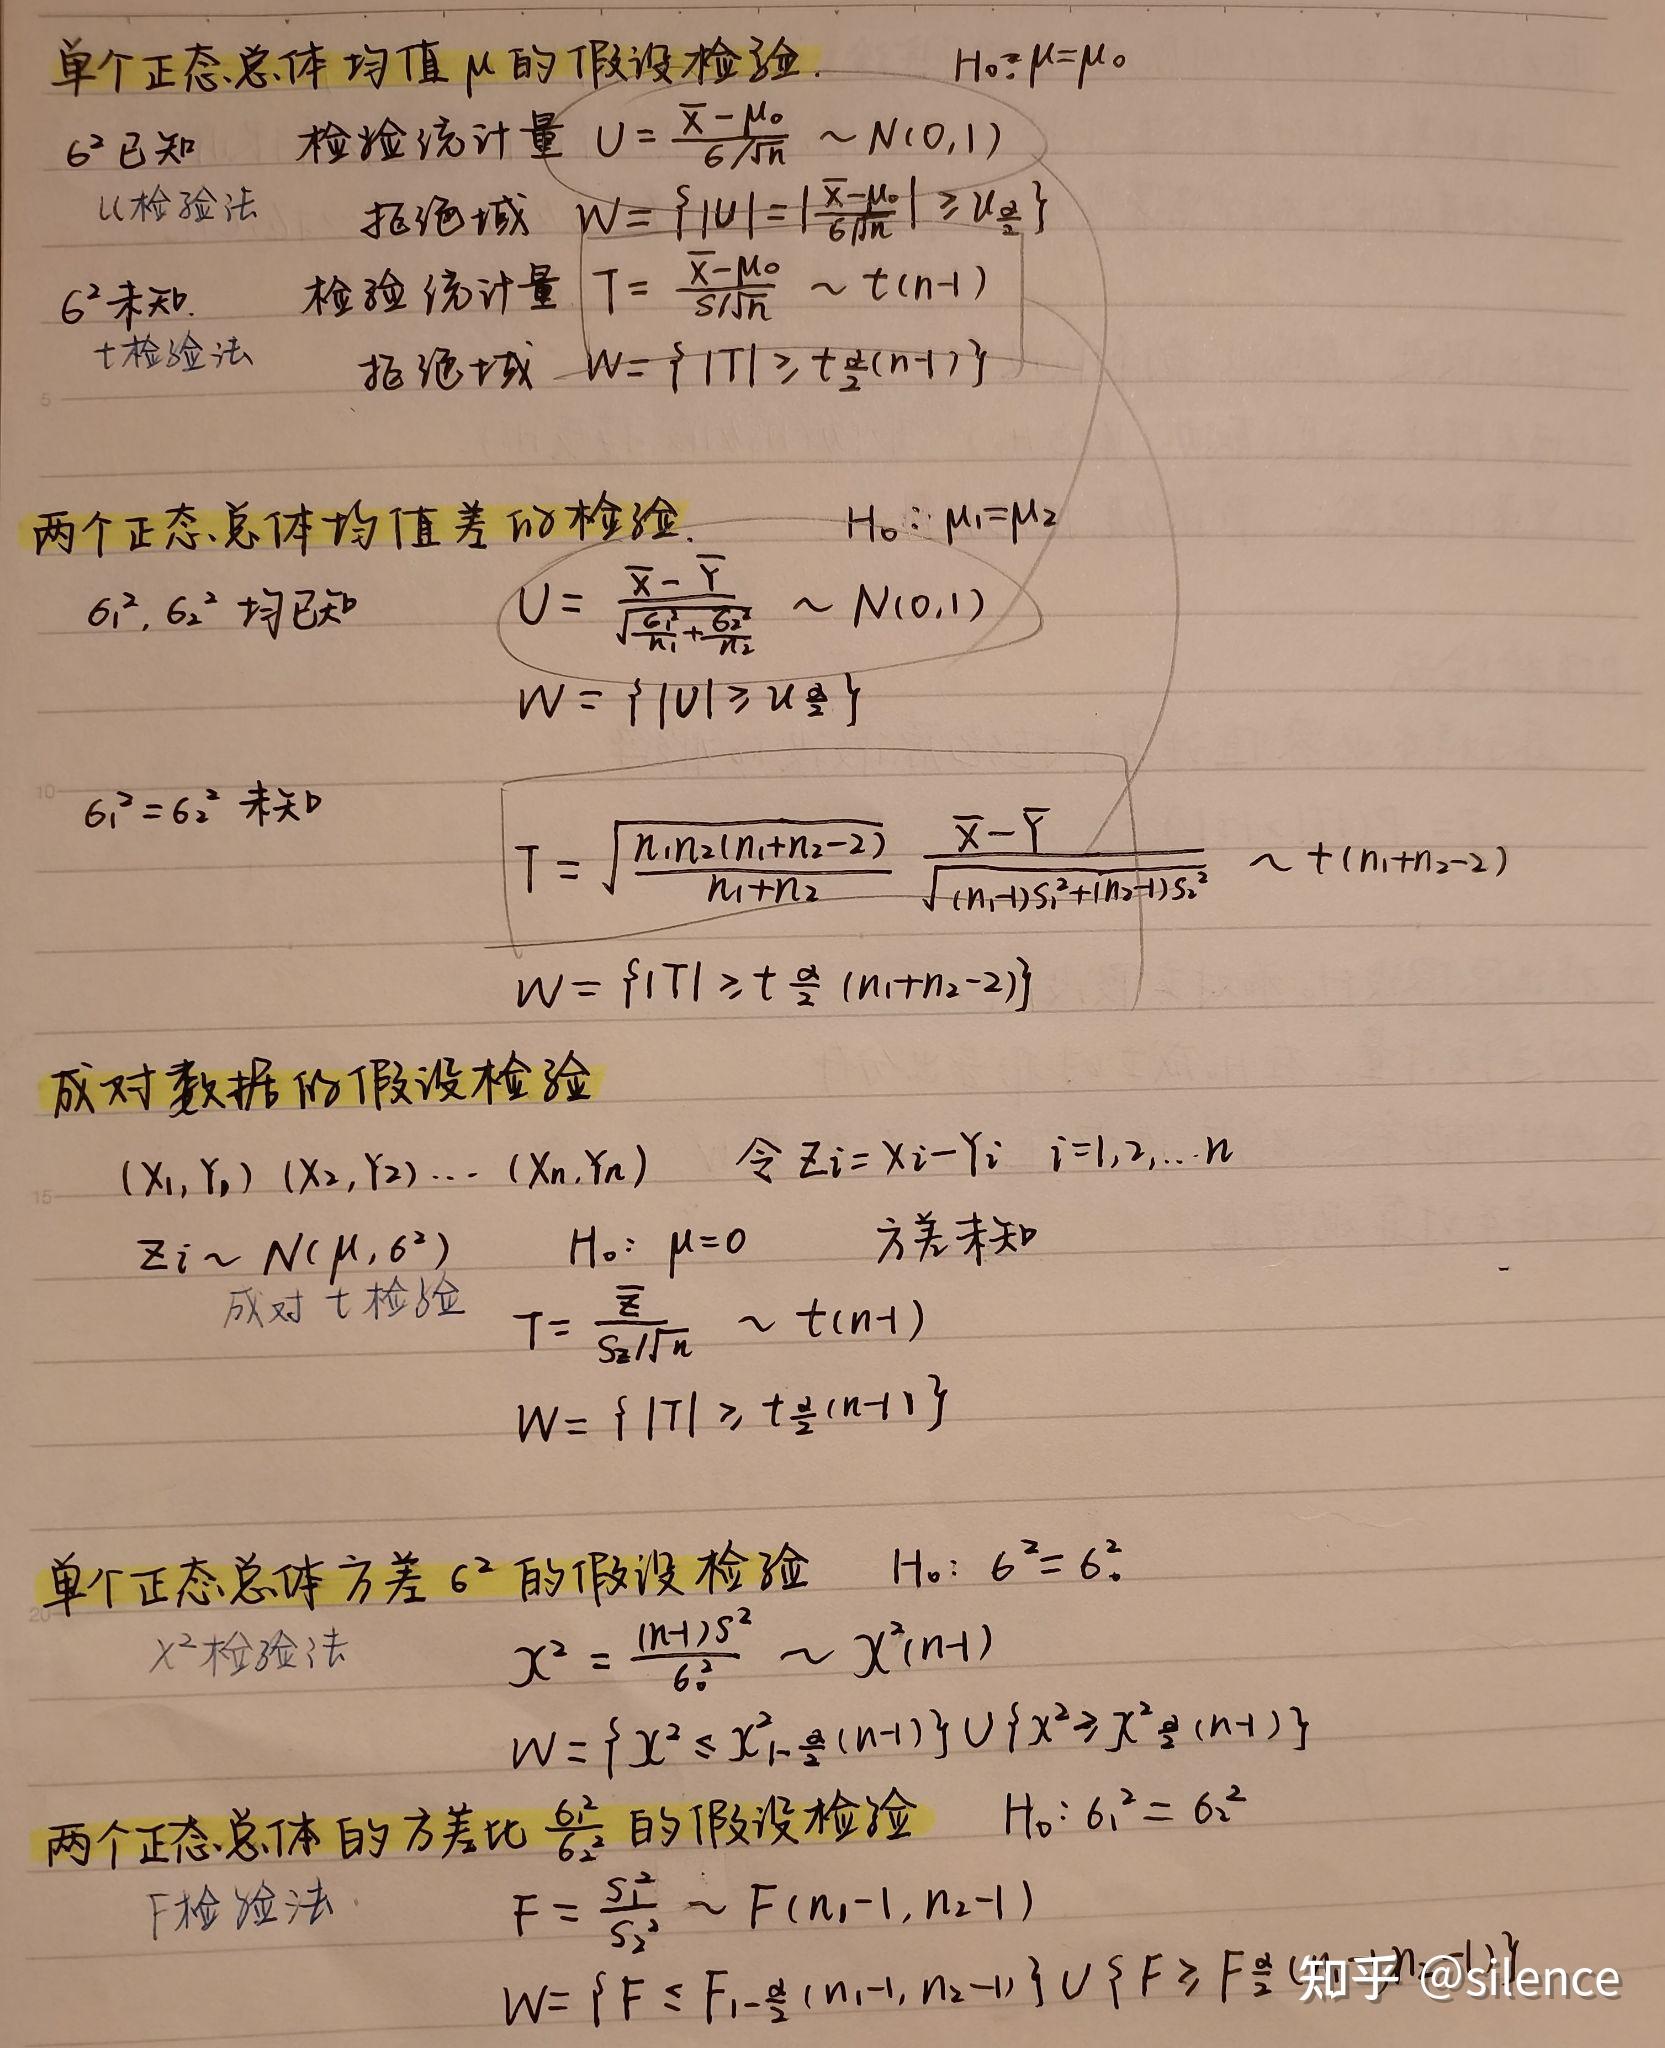 单个正态总体均值μ的假设检验. H₀: μ=μ₀
σ²已知 检验统计量 U = (X̄-μ₀)/(σ/√n) ~ N(0,1)
u检验法 拒绝域 W = {|U| = |(X̄-μ₀)/(σ/√n)| ≥ u_{α/2}}
σ²未知. 检验统计量 T = (X̄-μ₀)/(S/√n) ~ t(n-1)
t检验法 拒绝域 W = {|T| ≥ t_{α/2}(n-1)}
5
两个正态总体均值差的检验. H₀: μ₁=μ₂
σ₁², σ₂² 均已知 U = (X̄-Ȳ)/√(σ₁²/n₁+σ₂²/n₂) ~ N(0,1)
W = {|U| ≥ u_{α/2}}
10
σ₁²=σ₂² 未知
T = √(n₁n₂(n₁+n₂-2)/(n₁+n₂)) (X̄-Ȳ)/√((n₁-1)S₁²+(n₂-1)S₂²) ~ t(n₁+n₂-2)
W = {|T| ≥ t_{α/2}(n₁+n₂-2)}
成对数据的假设检验
(X₁,Y₁) (X₂,Y₂)... (Xn,Yn) 令Zi=Xi-Yi i=1,2,...n
15
Zi ~ N(μ,σ²) H₀: μ=0 方差未知
成对t检验 T = Z̄/(S_Z/√n) ~ t(n-1)
W = {|T| ≥ t_{α/2}(n-1)}
单个正态总体方差σ²的假设检验 H₀: σ²=σ₀²
20
χ²检验法 χ² = (n-1)S²/σ₀² ~ χ²(n-1)
W = {χ² ≤ χ²_{1-α/2}(n-1)} ∪ {χ² ≥ χ²_{α/2}(n-1)}
两个正态总体的方差比 σ₁²/σ₂² 的假设检验 H₀: σ₁²=σ₂²
F检验法 F = S₁²/S₂² ~ F(n₁-1, n₂-1)
W = {F ≤ F_{1-α/2}(n₁-1, n₂-1)} ∪ {F ≥ F_{α/2}(n₁-1, n₂-1)}
知乎 @silence